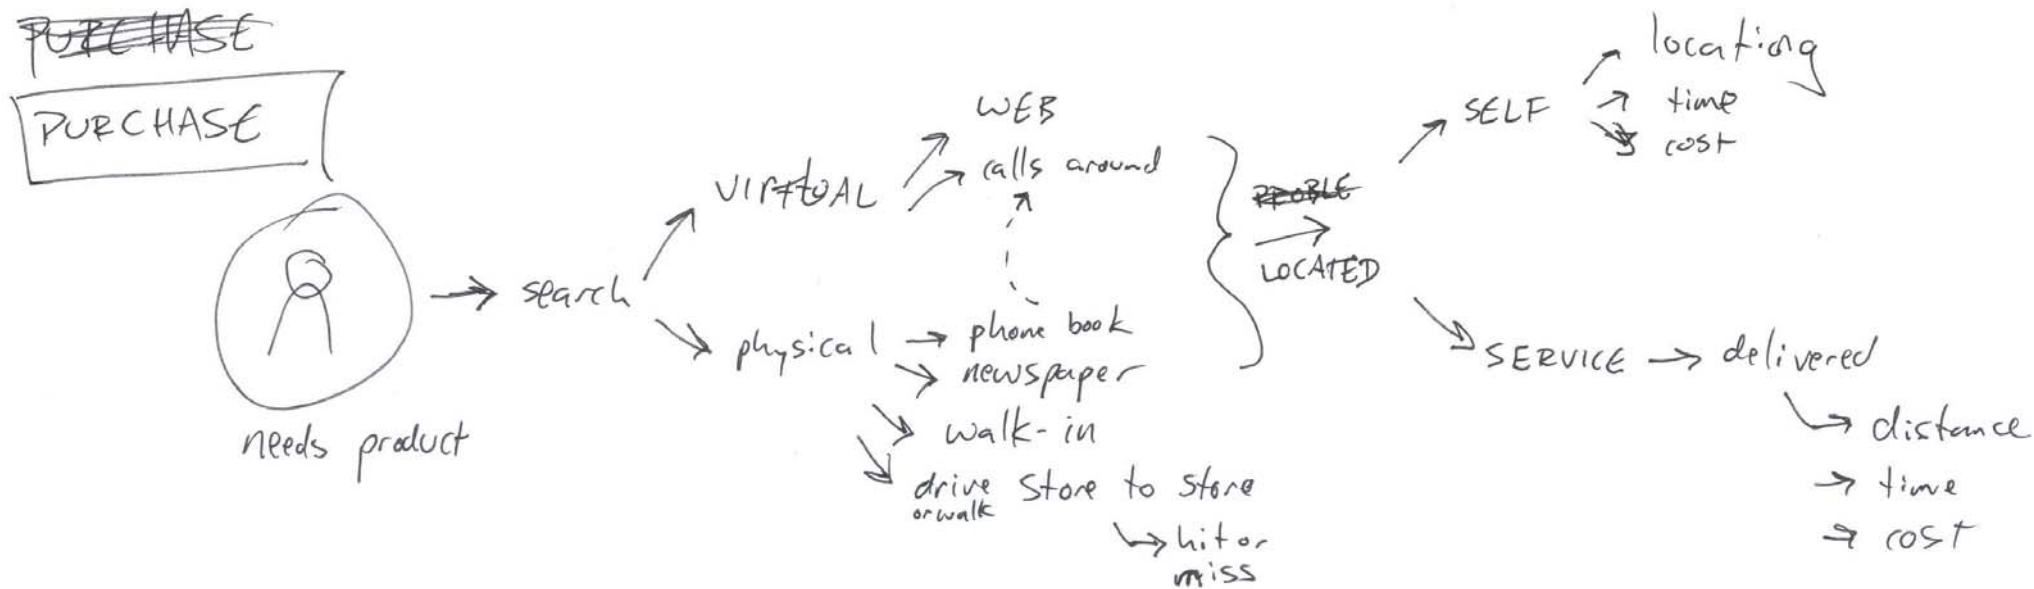 PURCHASE
PURCHASE
needs product
search
VIRTUAL
WEB
calls around
physical
phone book
newspaper
walk-in
drive store to store
or walk
hit or
miss
PROBLE
LOCATED
SELF
locating
time
cost
SERVICE
delivered
distance
time
cost